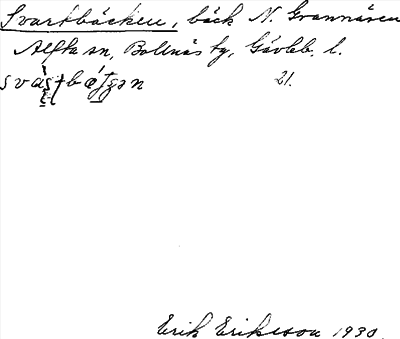 Svartbäcken, bäck N. Grannäsen
Alfta sn, Bollnäs tg, Gävleb. l.
21.
Erik Eriksson 1930.